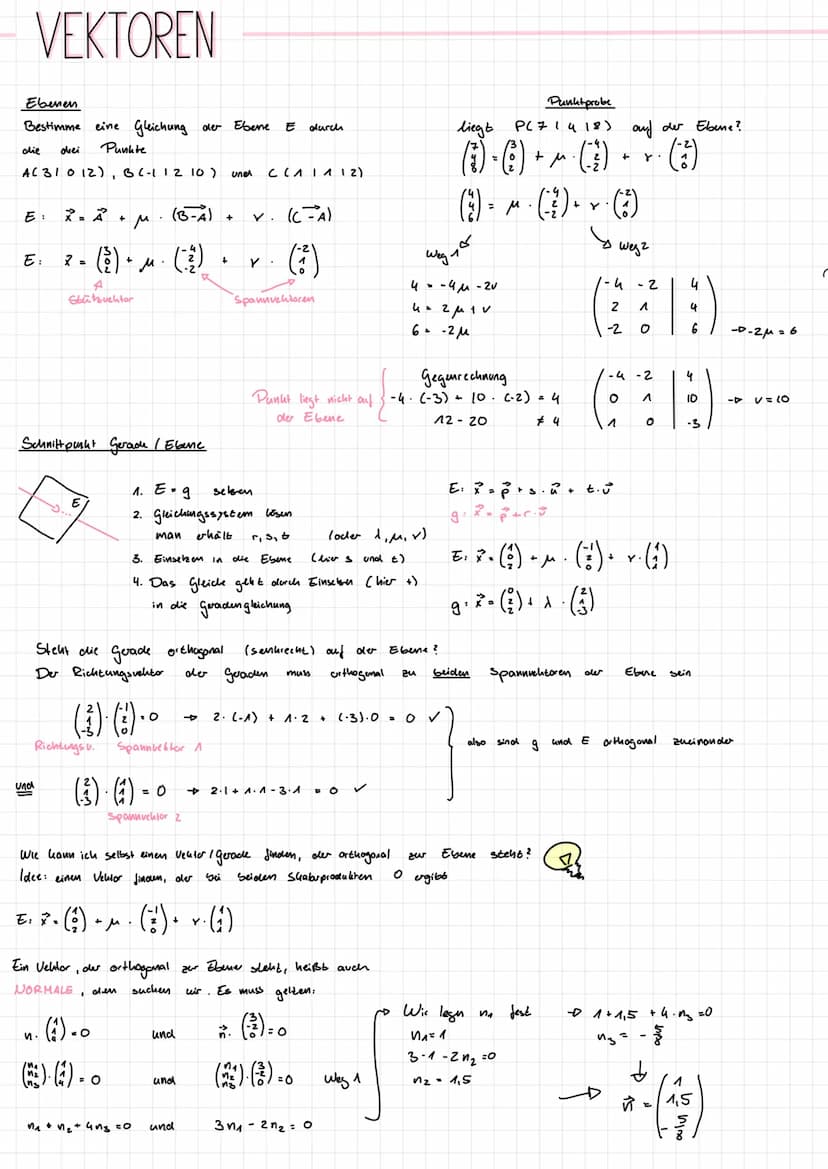 VEKTOREN
Ebenen
Bestimme eine Gleichung der Ebene E durch
die drei Punkte
A(3|0|2), B(-1|2|0) und C(1|1|2)
E: x⃗ = A⃗ + μ · (B-A) + v · (C-A)
E: x⃗ = (3 0 2) + μ · (-4 2 -2) + v · (-2 1 0)
Stützvektor
Spannvektoren
Punktprobe
liegt P(7|4|8) auf der Ebene?
(7 4 8) = (3 0 2) + μ · (-4 2 -2) + v · (-2 1 0)
(4 4 6) = μ · (-4 2 -2) + v · (-2 1 0)
Weg 1
Weg 2
4 = -4μ - 2v
4 = 2μ + v
6 = -2μ
-4 -2 | 4
2 1 | 4
-2 0 | 6 → -2μ = 6
Gegenrechnung
-4 · (-3) + 10 · (-2) = 4
12 - 20 ≠ 4
Punkt liegt nicht auf
der Ebene
-4 -2 | 4
0 1 | 10 → v = 10
1 0 | -3
Schnittpunkt Gerade / Ebene
E
1. E = g setzen
2. Gleichungssystem lösen
man erhält r, s, t (oder λ, μ, v)
3. Einsetzen in die Ebene (hier s und t)
4. Das Gleiche geht durch Einsetzen (hier t)
in die Geradengleichung
E: x⃗ = p⃗ + s · u⃗ + t · v⃗
g: x⃗ = p⃗ + r · v⃗
E: x⃗ = (1 0 2) + μ · (-1 2 0) + v · (1 1 1)
g: x⃗ = (0 2 2) + λ · (2 1 -3)
Steht die Gerade orthogonal (senkrecht) auf der Ebene?
Der Richtungsvektor der Geraden muss orthogonal zu beiden Spannvektoren der Ebene sein
(2 1 -3) · (-1 2 0) = 0 → 2 · (-1) + 1 · 2 + (-3) · 0 = 0 ✓
Richtungsv. Spannvektor 1
also sind g und E orthogonal zueinander
und (2 1 -3) · (1 1 1) = 0 → 2 · 1 + 1 · 1 - 3 · 1 = 0 ✓
Spannvektor 2
Wie kann ich selbst einen Vektor/Gerade finden, der orthogonal zur Ebene steht?
Idee: einen Vektor finden, der bei beiden Skalarprodukten 0 ergibt
E: x⃗ = (1 0 2) + μ · (-1 2 0) + v · (1 1 1)
Ein Vektor, der orthogonal zur Ebene steht, heißt auch
NORMALE, den suchen wir. Es muss gelten:
n · (1 1 4) = 0 und n⃗ · (3 -2 0) = 0
(n1 n2 n3) · (1 1 4) = 0 und (n1 n2 n3) · (3 -2 0) = 0 Weg 1
n1 + n2 + 4n3 = 0 und 3n1 - 2n2 = 0
Wir legen n1 fest
n1 = 1
3 · 1 - 2n2 = 0
n2 = 1,5
→ 1 + 1,5 + 4 · n3 = 0
n3 = - 5/8
→ n⃗ = (1 1,5 -5/8)